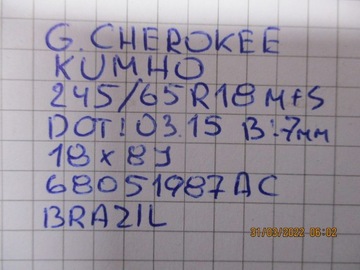 G. CHEROKEE
KUMHO
245/65R18 M+S
DOT: 03.15 B:7мм
18x8J
68051987AC
BRAZIL
31/03/2022 06:02